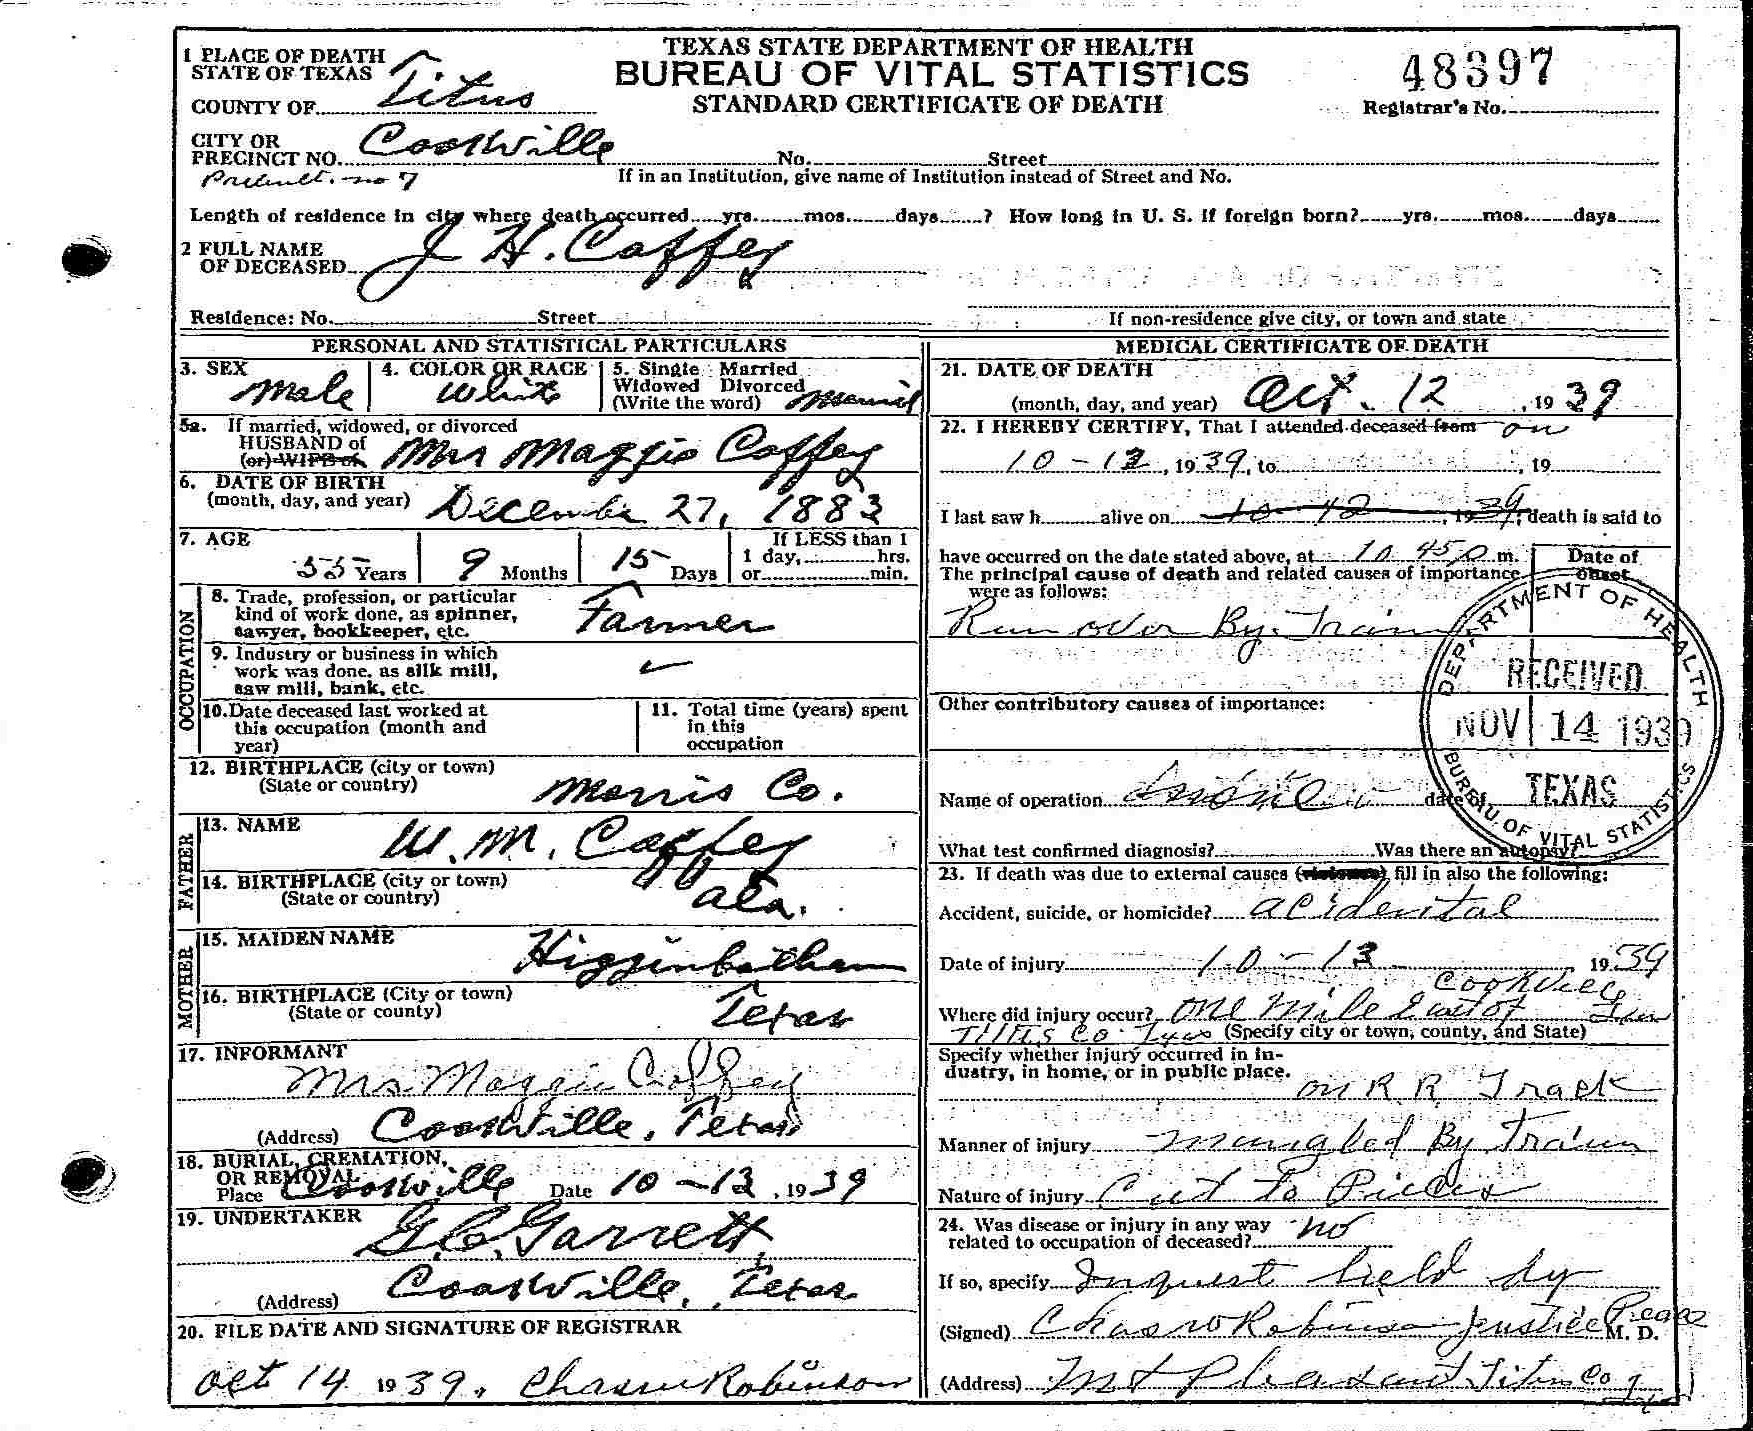 TEXAS STATE DEPARTMENT OF HEALTH
BUREAU OF VITAL STATISTICS
STANDARD CERTIFICATE OF DEATH
48397
Registrar's No.
1 PLACE OF DEATH
STATE OF TEXAS
COUNTY OF Titus
CITY OR
PRECINCT NO. Cookville No. Street
no 7 If in an Institution, give name of Institution instead of Street and No.
Length of residence in city where death occurred yrs. mos. days ? How long in U. S. if foreign born? yrs. mos. days
2 FULL NAME
OF DECEASED J H. Caffey
Residence: No. Street
If non-residence give city, or town and state
PERSONAL AND STATISTICAL PARTICULARS
3. SEX Male
4. COLOR OR RACE White
5. Single Married
Widowed Divorced
(Write the word) Married
5a. If married, widowed, or divorced
HUSBAND of
(or) WIFE of Mrs Maggie Caffey
6. DATE OF BIRTH
(month, day, and year) December 27, 1883
7. AGE
55 Years 9 Months 15 Days
If LESS than 1
1 day, hrs.
or min.
OCCUPATION
8. Trade, profession, or particular
kind of work done, as spinner,
sawyer, bookkeeper, etc. Farmer
9. Industry or business in which
work was done, as silk mill,
saw mill, bank, etc.
10. Date deceased last worked at
this occupation (month and
year)
11. Total time (years) spent
in this
occupation
12. BIRTHPLACE (city or town)
(State or country) Morris Co.
FATHER
13. NAME W. M. Caffey
14. BIRTHPLACE (city or town)
(State or country) Ala.
MOTHER
15. MAIDEN NAME Higginbotham
16. BIRTHPLACE (City or town)
(State or county) Texas
17. INFORMANT
Mrs. Maggie Caffey
(Address) Cookville, Texas
18. BURIAL, CREMATION,
OR REMOVAL
Place Cookville Date 10-13, 1939
19. UNDERTAKER
G. C. Garrett
(Address) Cookville, Texas
20. FILE DATE AND SIGNATURE OF REGISTRAR
Oct 14 1939. Chas w Robinson
MEDICAL CERTIFICATE OF DEATH
21. DATE OF DEATH
(month, day, and year) Oct. 12, 1939
22. I HEREBY CERTIFY, That I attended deceased from on
10-13, 1939, to , 19
I last saw h alive on 10 12, 1939, death is said to
have occurred on the date stated above, at 10 45 p m.
The principal cause of death and related causes of importance
were as follows:
Date of
onset
Run over By. Train
Other contributory causes of importance:
Name of operation date of
What test confirmed diagnosis? Was there an autopsy?
DEPARTMENT OF HEALTH
RECEIVED
NOV 14 1939
TEXAS
BUREAU OF VITAL STATISTICS
23. If death was due to external causes (violence) fill in also the following:
Accident, suicide, or homicide? acidental
Date of injury 10-13 1939
Cookville
Where did injury occur? One Mile East of
Titus Co. (Specify city or town, county, and State)
Specify whether injury occurred in in-
dustry, in home, or in public place.
on R. R. Track
Manner of injury mangled By Train
Nature of injury Cut to Pieces
24. Was disease or injury in any way
related to occupation of deceased? no
If so, specify Inquest held by
(Signed) Chas w Robinson Justice Peace M. D.
(Address) Mt Pleasant Titus Co